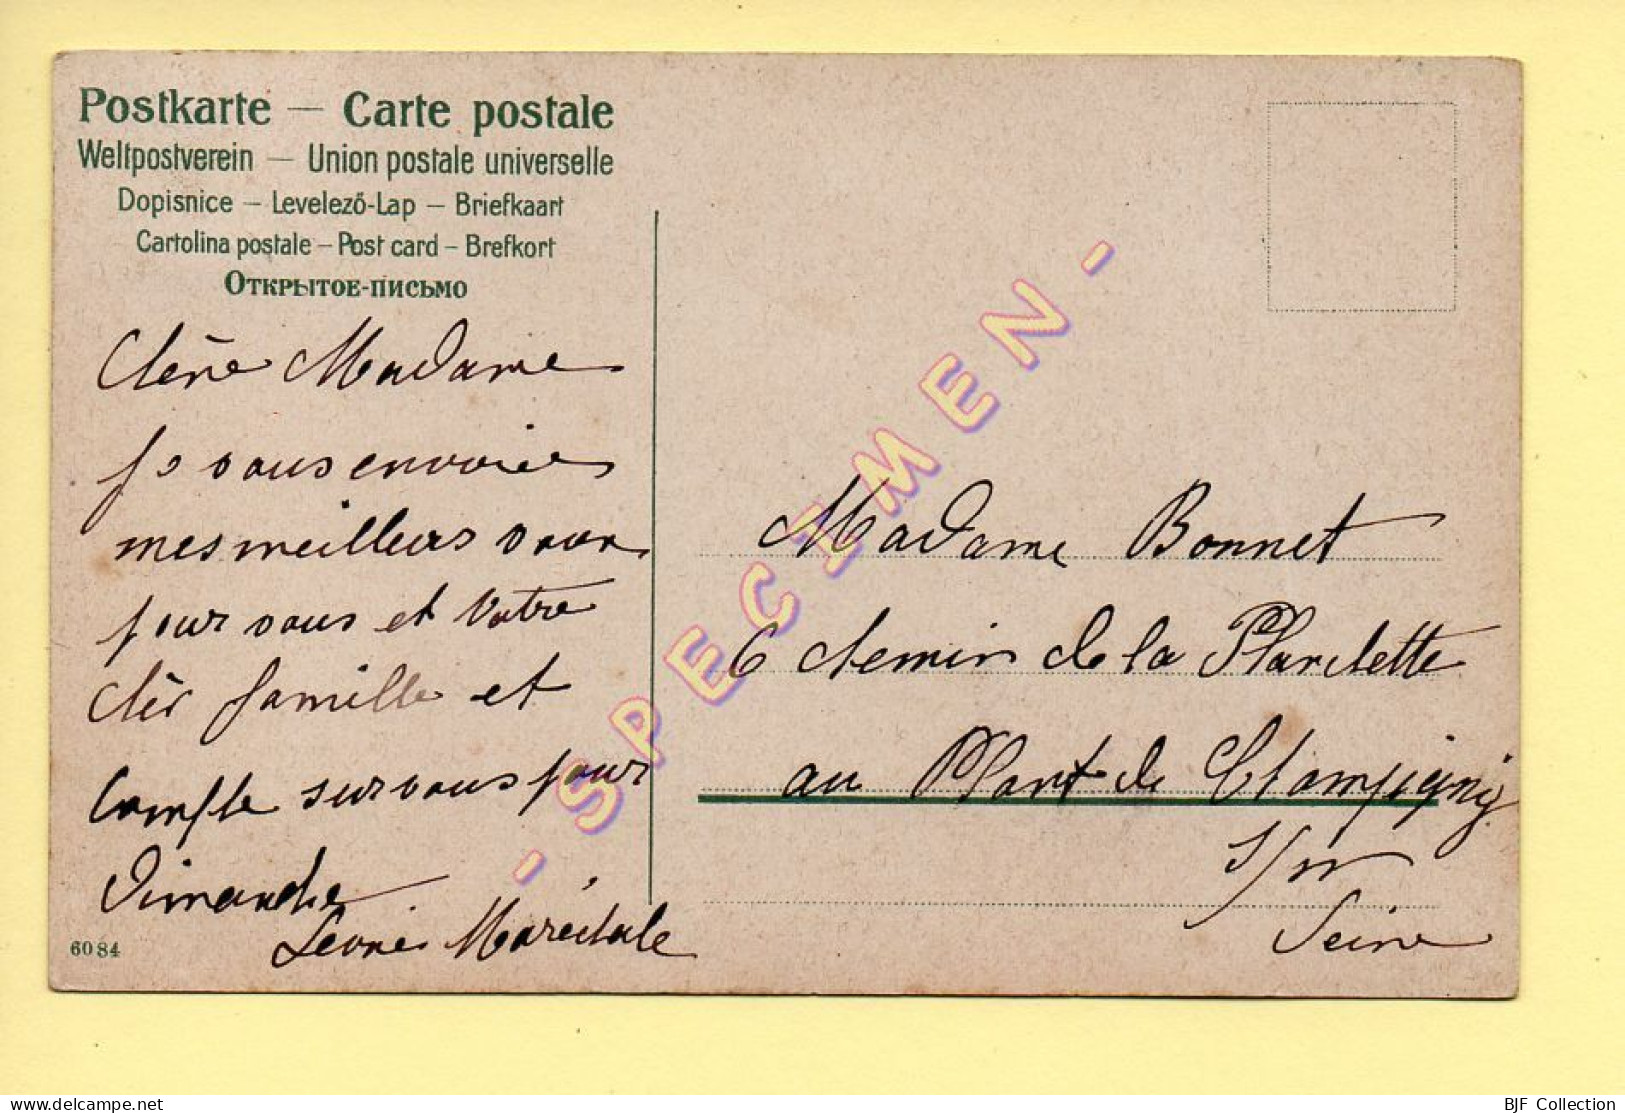 Postkarte — Carte postale
Weltpostverein — Union postale universelle
Dopisnice — Levelező-Lap — Briefkaart
Cartolina postale — Post card — Brefkort
Открытое-письмо
Chère Madame
je vous envoies
mes meilleurs vœux
pour vous et votre
chèr famille et
compte sur vous pour
Dimanche
Léonie Maréchale
6084
Madame Bonnet
6 chemin de la Planchette
au Plant de Champigny
s/m
Seine
- SPECIMEN -
www.delcampe.net
BJF Collection